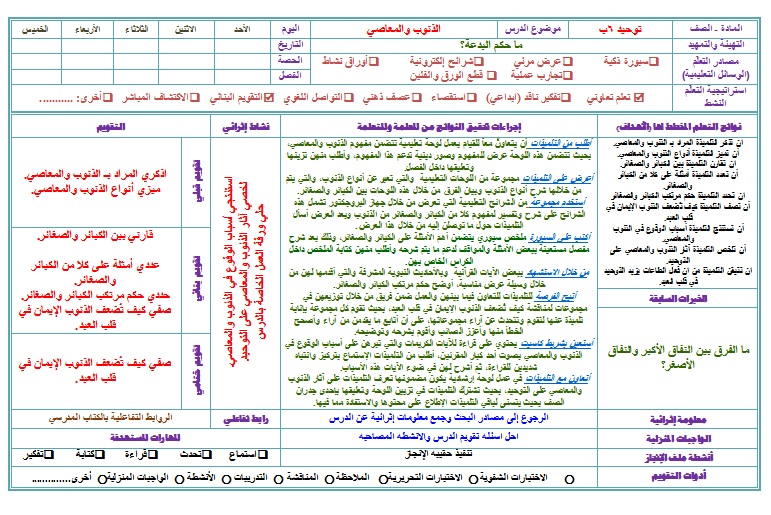 المادة - الصف
توحيد ٦ب
موضوع الدرس
الذنوب والمعاصي
اليوم
الأحد
الاثنين
الثلاثاء
الأربعاء
الخميس
التهيئة والتمهيد
ما حكم البدعة؟
التاريخ
مصادر التعلم
(الوسائل التعليمية)
سبورة ذكية
عرض مرئي
شرائح إلكترونية
أوراق نشاط
تجارب عملية
قطع الورق والفلين
الحصة
الفصل
استراتيجية التعلم
النشط
تعلم تعاوني
تفكير ناقد (ابداعي)
استقصاء
عصف ذهني
التواصل اللغوي
التقويم البنائي
الاكتشاف المباشر
أخرى: ...........
نواتج التعلم المخطط لها (الأهداف)
إجراءات تحقيق النواتج من للمعلمة وللمتعلمة
نشاط إثرائي
التقويم
ان تذكر التلميذة المراد بـ الذنوب والمعاصي.
ان تميز التلميذة أنواع الذنوب والمعاصي.
ان تقارن التلميذة بين الكبائر والصغائر.
ان تعدد التلميذة أمثلة على كلا من الكبائر
والصغائر.
ان تحدد التلميذة حكم مرتكب الكبائر والصغائر.
ان تصف التلميذة كيف تُضعف الذنوب الإيمان في
قلب العبد.
ان تستنتج التلميذة أسباب الوقوع في الذنوب
والمعاصي.
ان تلخص التلميذة آثار الذنوب والمعاصي على
التوحيد.
ان تتيقن التلميذة من ان فعل الطاعات يزيد التوحيد
في قلب العبد.
الخبرات السابقة
ما الفرق بين النفاق الأكبر والنفاق
الأصغر؟
أطلب من التلميذات أن يتعاونّ معاً للقيام بعمل لوحة تعليمية تتضمن مفهوم الذنوب والمعاصي،
بحيث تتضمن هذه اللوحة عرض للمفهوم وصور دينية تدعم هذا المفهوم، وأطلب منهن تزينها
وتعليقها داخل الفصل.
أعرض على التلميذات مجموعة من اللوحات التعليمية والتي تعبر عن أنواع الذنوب، والتي يتم
من خلالها شرح أنواع الذنوب وبيان الفرق من خلال هذه اللوحات بين الكبائر والصغائر.
أستخدم مجموعة من الشرائح التعليمية التي تعرض من خلال جهاز البروجكتور تشمل هذه
الشرائح على شرح وتفسير لمفهوم كلا من الكبائر والصغائر من الذنوب وبعد العرض أسأل
التلميذات حول ما توصلن إليه من خلال هذا العرض.
أكتب على السبورة ملخص سبوري يتضمن أهم الأمثلة على الكبائر والصغائر، وذلك بعد شرح
مفصل مستعينة ببعض الأمثلة والمواقف لدعم ما يتم شرحه وأطلب منهن كتابة الملخص داخل
الكراس الخاص بهن.
من خلال الاستشهاد ببعض الآيات القرآنية وبالأحاديث النبوية المشرفة والتي أقدمها لهن من
خلال وسيلة عرض مناسبة، أوضح حكم مرتكب الكبائر والصغائر.
أتيح الفرصة للتلميذات للتعاون فيما بينهن والعمل ضمن فريق من خلال توزيعهن في
مجموعات لمناقشة كيف تُضعف الذنوب الإيمان في قلب العبد، بحيث تقوم كل مجموعة بإنابة
تلميذة عنها لتقوم وتتحدث عن آراء مجموعاتها، على أن أتابع ما يقدمن من آراء وأصحح
الخطأ منها وأعزز الصائب وأقوم بشرحه وتوضيحه.
أستعين بشريط كاسيت يحتوي على قراءة للآيات الكريمات والتي تبرهن على أسباب الوقوع في
الذنوب والمعاصي بصوت أحد كبار المقرئين، أطلب من التلميذات الإستماع بتركيز وانتباه
شديدين للقراءة، ثم أشرح لهن في ضوء الآيات هذه الأسباب.
أتعاون مع التلميذات في عمل لوحة إرشادية يكون مضمونها تعرف التلميذات على آثار الذنوب
والمعاصي على التوحيد، بحيث تشترك التلميذات في تزيين اللوحة وتعليقها بإحدى جدران
الصف بحيث يتسنى لباقي التلميذات الإطلاع على محتوها والاستفادة مما فيها.
استنتجي أسباب الوقوع في الذنوب والمعاصي.
لخصي آثار الذنوب والمعاصي على التوحيد
حلي ورقة العمل الخاصة بالدرس
تقويم قبلي
اذكري المراد بـ الذنوب والمعاصي.
ميزي أنواع الذنوب والمعاصي.
تقويم بنائي
قارني بين الكبائر والصغائر.
عددي أمثلة على كلا من الكبائر
والصغائر.
حددي حكم مرتكب الكبائر والصغائر.
صفي كيف تُضعف الذنوب الإيمان في
قلب العبد.
تقويم ختامي
صفي كيف تُضعف الذنوب الإيمان في
قلب العبد.
معلومة إثرائية
الرجوع إلى مصادر البحث وجمع معلومات إثرائية عن الدرس
رابط تفاعلي
الروابط التفاعلية بالكتاب المدرسي
الواجبات المنزلية
احل اسئله تقويم الدرس والانشطه المصاحبه
المهارات المستهدفة
أنشطة ملف الإنجاز
تنفيذ حقيبه الإنجاز
استماع
تحدث
قراءة
كتابة
تفكير
أدوات التقويم
الاختبارات الشفوية
الاختبارات التحريرية
الملاحظة
المناقشة
التدريبات
الأنشطة
الواجبات المنزلية
أخرى..............